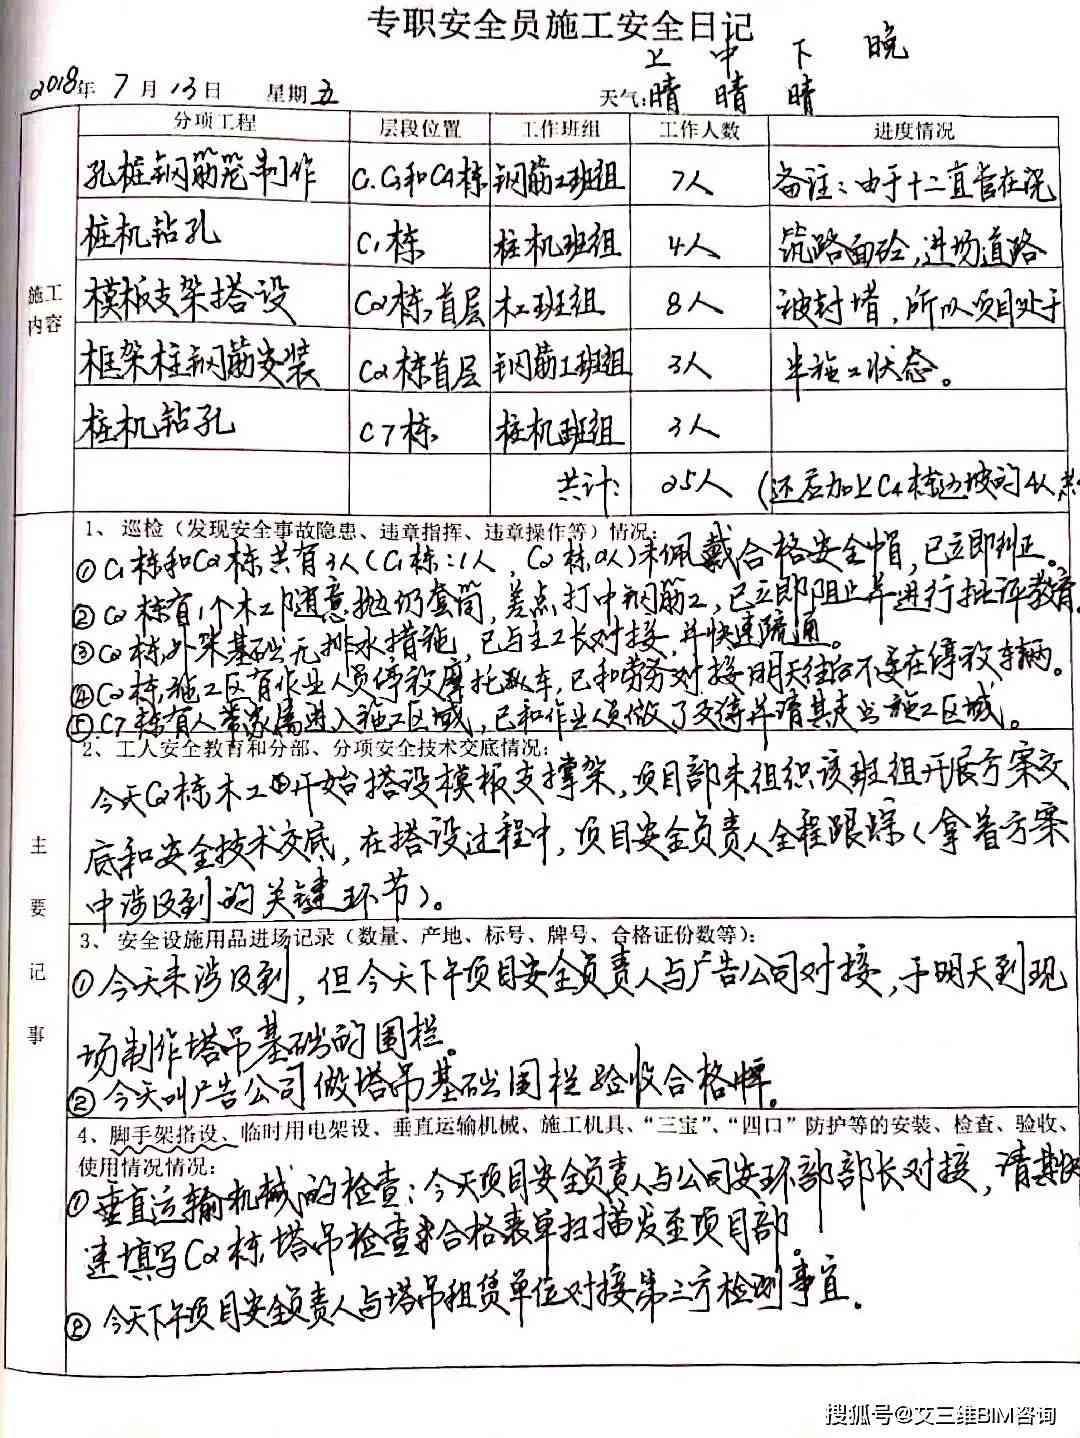 专职安全员施工安全日记
上 中 下 晚
2018年 7 月 13 日 星期五 天气:晴 晴 晴
分项工程 层段位置 工作班组 工作人数 进度情况
孔桩钢筋笼制作 C1.C3和C4栋 钢筋工班组 7人 备注:由于十二直管在浇
桩机钻孔 C1栋 桩机班组 4人 筑路面砼,进场道路
施工
内容
模板支架搭设 C2栋,首层 木工班组 8人 被封堵,所以项目处于
框架柱钢筋安装 C2栋首层 钢筋工班组 3人 半施工状态。
桩机钻孔 C7栋 桩机班组 3人
共计: 25人 (还应加上C4栋边坡的4人
主要记事
1、巡检(发现安全事故隐患、违章指挥、违章操作等)情况:
① C1栋和C2栋共有3人(C1栋:1人,C2栋2人)未佩戴合格安全帽,已立即纠正。
② C2栋有1个木工随意抛扔套筒,差点打中钢筋工,已立即阻止并进行批评教育
③ C2栋,外架基础无排水措施,已与主工长对接,并快速疏通。
④ C2栋,施工区有作业人员停放摩托车,已和劳务对接明天往后不要在停放车辆。
⑤ C7栋有人带家属进入施工区域,已和作业人员做了交待并请其走出施工区域。
2、工人安全教育和分部、分项安全技术交底情况:
今天C2栋木工开始搭设模板支撑架,项目部未组织该班组开展方案交
底和安全技术交底,在搭设过程中,项目安全负责人全程跟踪(拿着方案
中涉及到的关键环节)。
3、安全设施用品进场记录(数量、产地、标号、牌号、合格证份数等):
① 今天未涉及到,但今天下午项目安全负责人与广告公司对接,于明天到现
场制作塔吊基础的围栏。
② 今天叫广告公司做塔吊基础围栏验收合格牌。
4、脚手架搭设、临时用电架设、垂直运输机械、施工机具、“三宝”、“四口”防护等的安装、检查、验收、
使用情况情况:
① 垂直运输机械的检查:今天项目安全负责人与公司安环部部长对接,请其快
速填写C2栋塔吊检查合格表单扫描发至项目部。
② 今天下午项目安全负责人与塔吊租赁单位对接第三方检测事宜。
搜狐号@艾三维BIM咨询